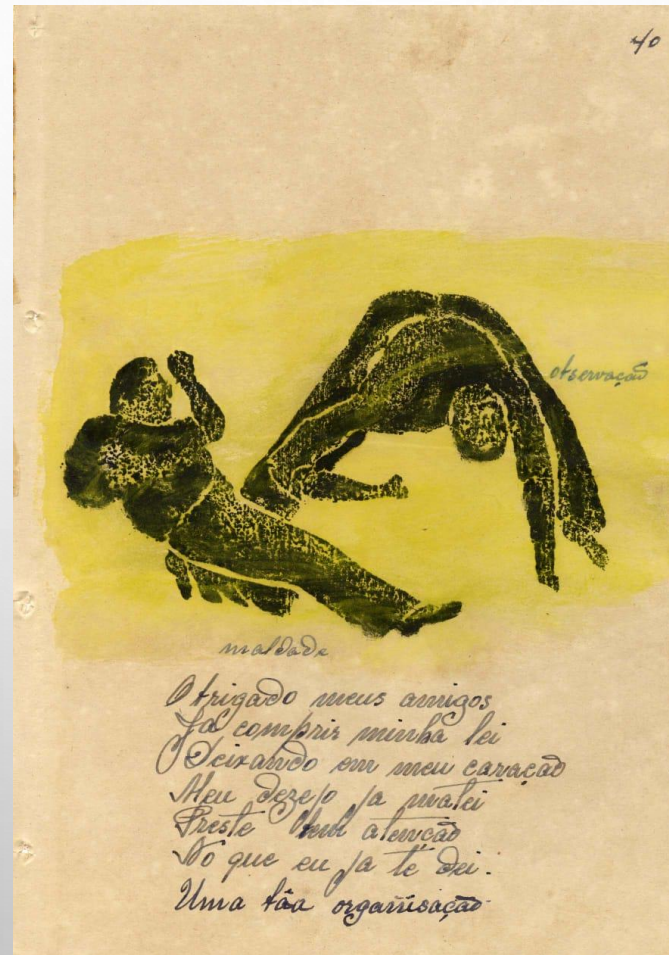 40
observação
maldade
Obrigado meus amigos
Ja comprir minha lei
Deixando em meu caracao
Meu dezejo ja matei
Preste bem atencão
No que eu ja te dei.
Uma tãa organisação